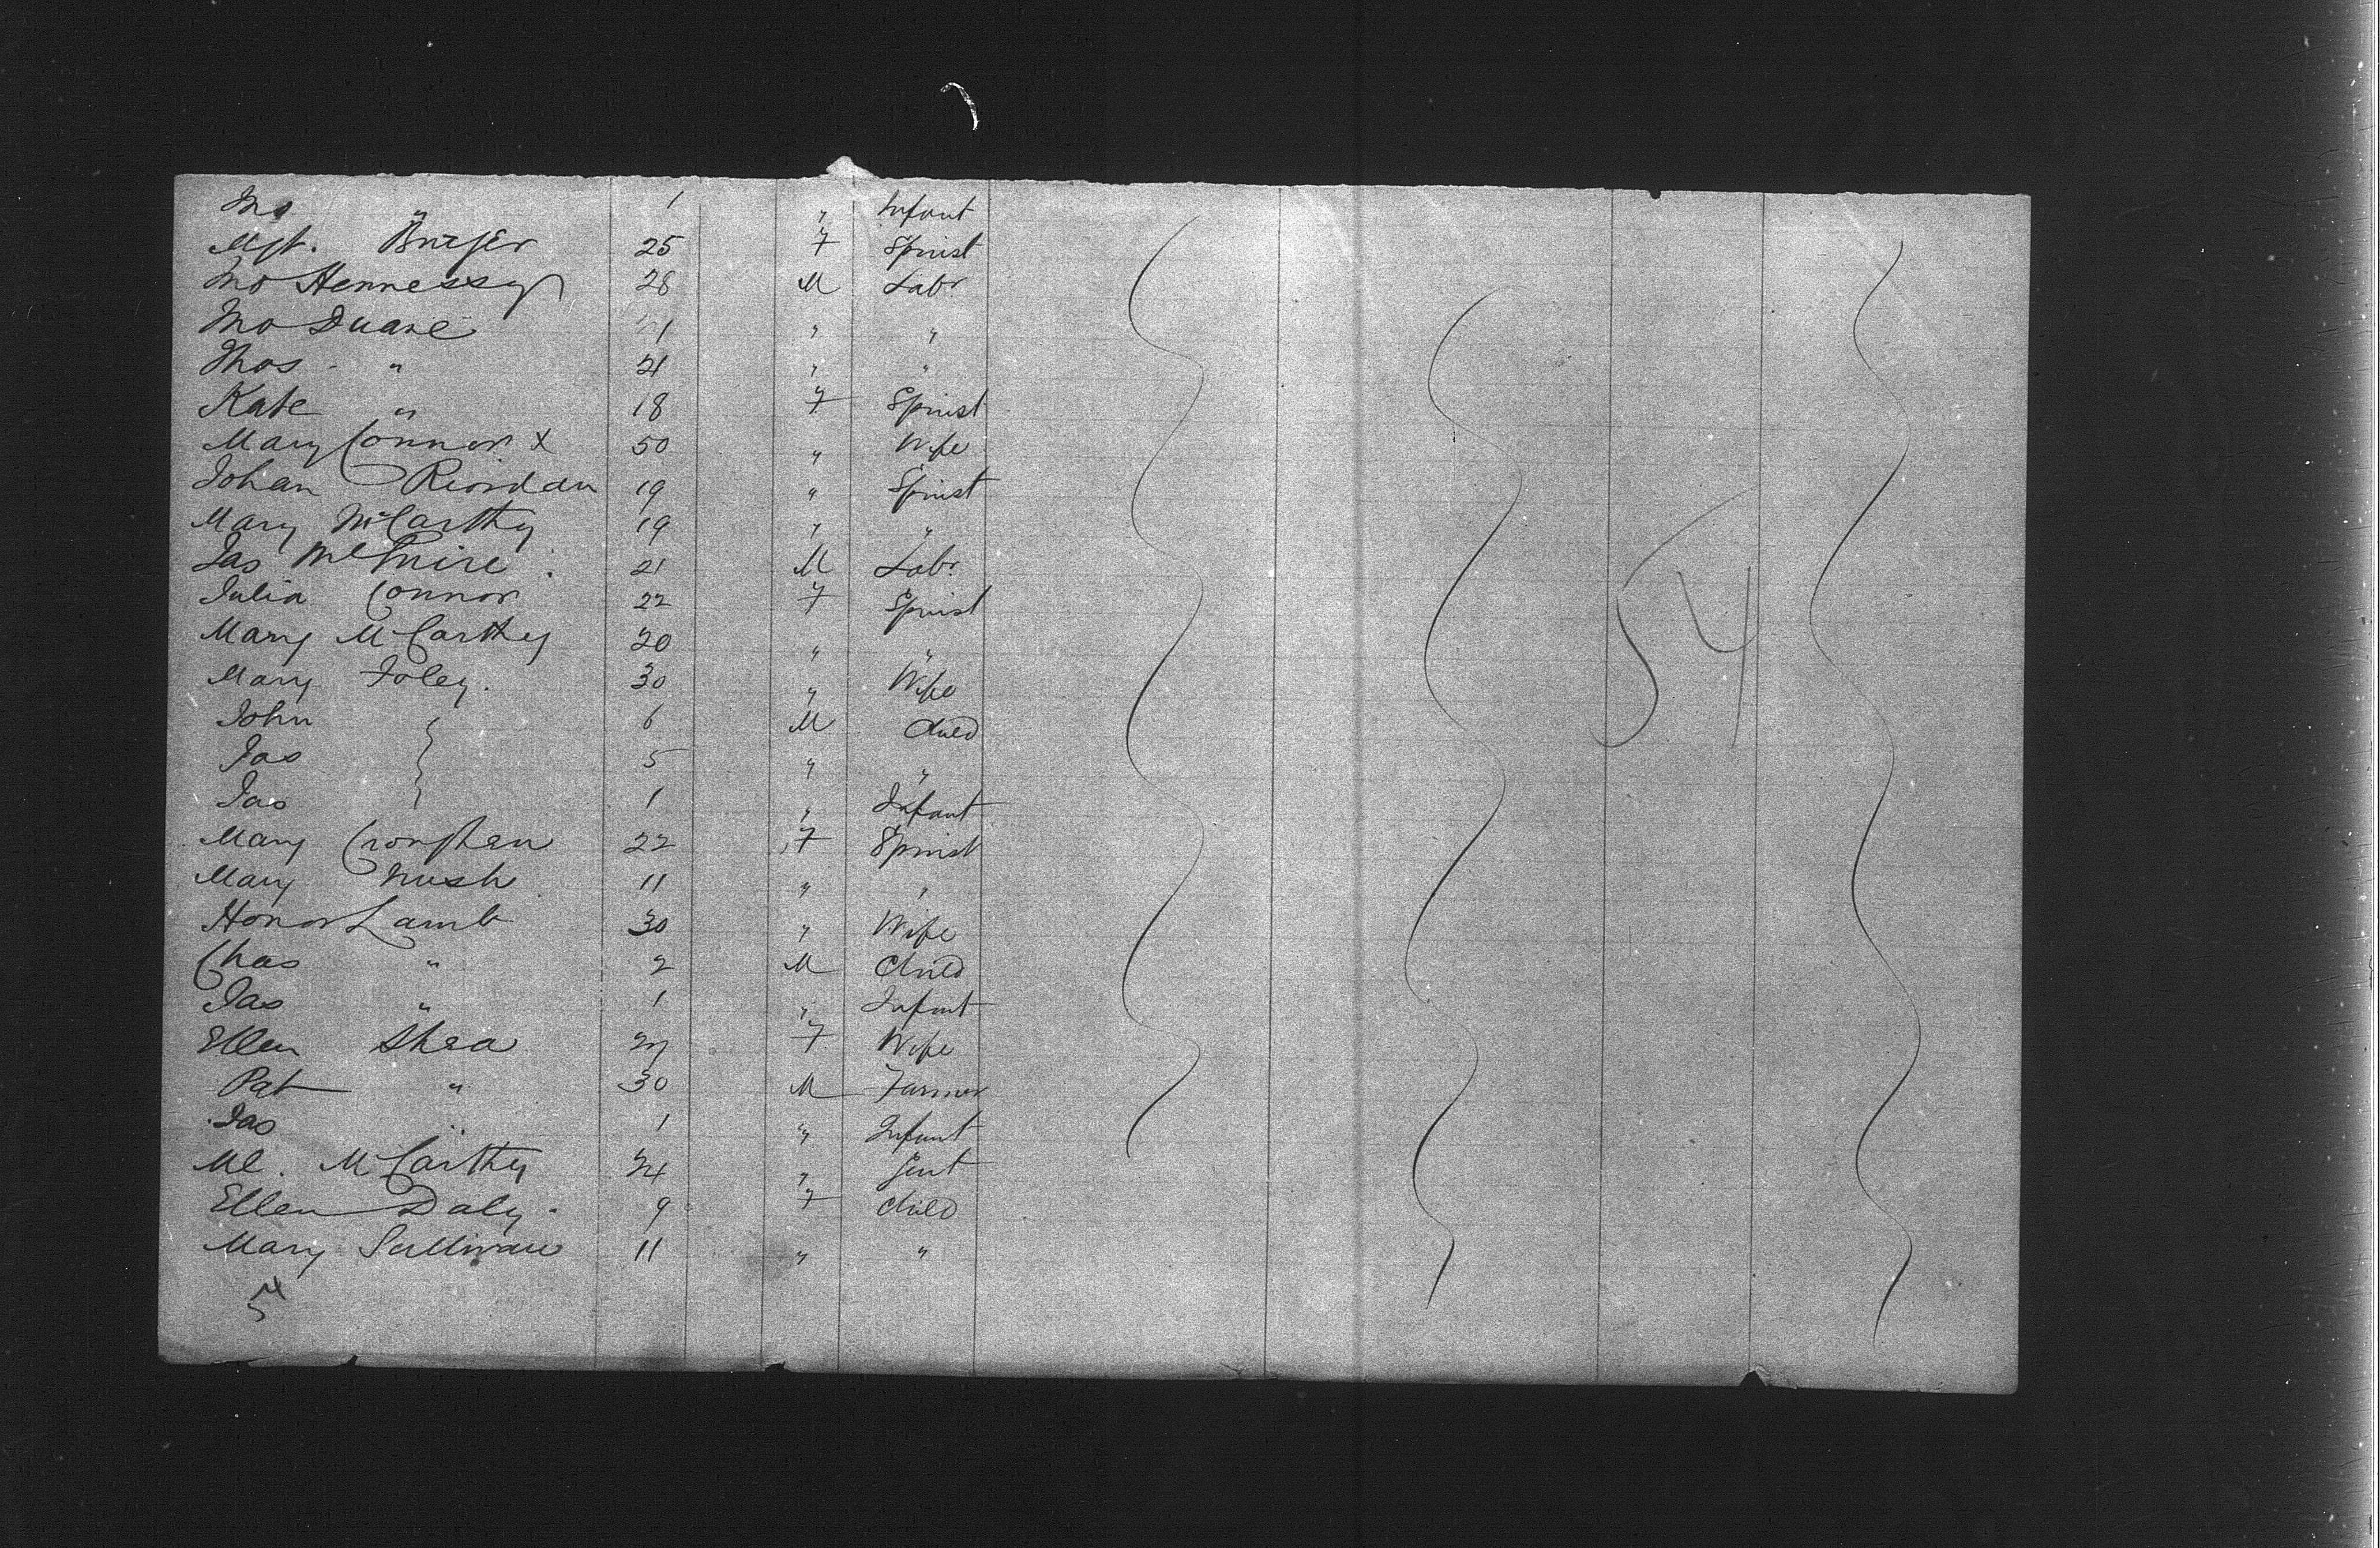 Jno " 1 " Infant
Mgt. 25 F Spinst
Jno Hennessy 28 M Labr
Jno Duane " "
Thos " 21 " "
Kate " 18 F Spinst
Mary Connor x 50 " Wife
Johan Riordan 19 " Spinst
Mary McCarthy 19 " "
Jas McGuire 21 M Labr
Julia Connor 22 F Spinst
Mary McCarthy 20 " "
Mary Foley. 30 " Wife
John } 6 M Child
Jas } 5 " "
Jas } 1 " Infant
Mary Croughan 22 F Spinst
Mary 11 " "
Honor Lamb 30 " Wife
Chas " 2 M Child
Jas " 1 " Infant
Ellen Shea 27 F Wife
Pat " 30 M Farmer
Jas " 1 " Infant
Ml. McCarthy 24 " Gent
Ellen Daly 9 F Child
Mary Sullivan 11 " "
54